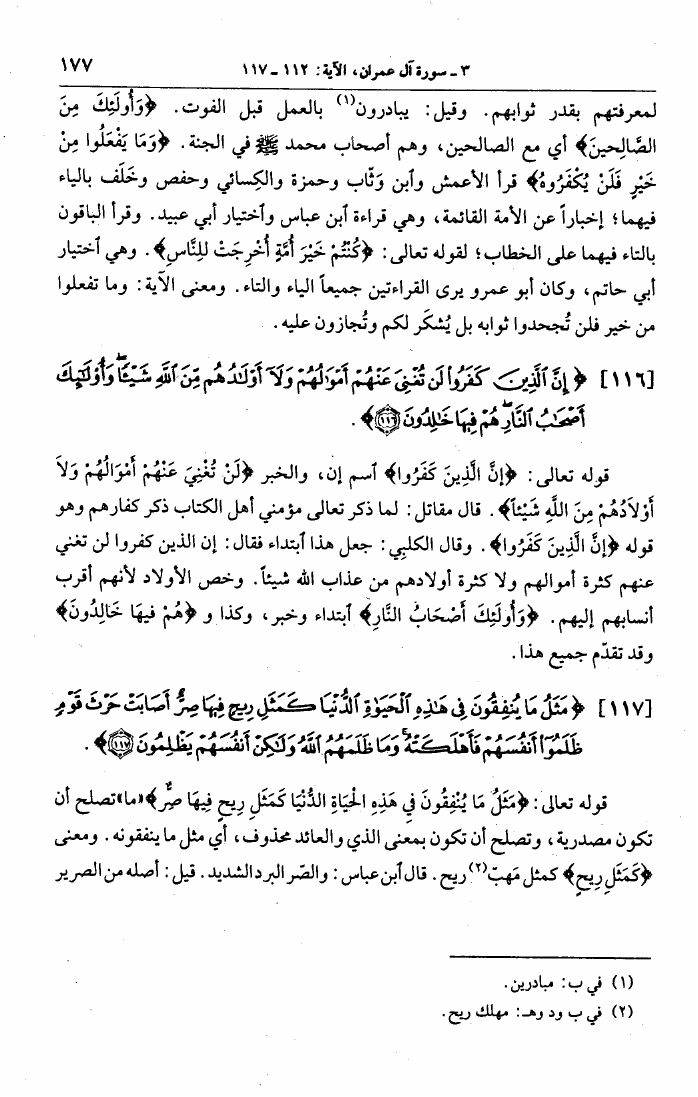 ٣ ـ سورة آل عمران، الآية: ١١٢ ـ ١١٧ ١٧٧
لمعرفتهم بقدر ثوابهم. وقيل: يبادرون(١) بالعمل قبل الفوت. ﴿وَأُولَئِكَ مِنَ
الصَّالِحينَ﴾ أي مع الصالحين، وهم أصحاب محمد ﷺ في الجنة. ﴿وَمَا يَفْعَلُوا مِنْ
خَيْرٍ فَلَنْ يُكْفَرُوهُ﴾ قرأ الأعمش وٱبن وَثّاب وحمزة والكِسائي وحفص وخَلَف بالياء
فيهما؛ إخباراً عن الأمة القائمة، وهي قراءة ٱبن عباس وٱختيار أبي عبيد. وقرأ الباقون
بالتاء فيهما على الخطاب؛ لقوله تعالى: ﴿كُنْتُمْ خَيْرَ أُمَّةٍ أُخْرِجَتْ لِلنَّاسِ﴾. وهي ٱختيار
أبي حاتم، وكان أبو عمرو يرى القراءتين جميعاً الياء والتاء. ومعنى الآية: وما تفعلوا
من خير فلن تُجحدوا ثوابه بل يُشكَر لكم وتُجازون عليه.
[١١٦] ﴿ إِنَّ ٱلَّذِينَ كَفَرُوا۟ لَن تُغْنِىَ عَنْهُمْ أَمْوَٰلُهُمْ وَلَآ أَوْلَٰدُهُم مِّنَ ٱللَّهِ شَيْـًٔا ۖ وَأُو۟لَٰٓئِكَ
أَصْحَٰبُ ٱلنَّارِ ۚ هُمْ فِيهَا خَٰلِدُونَ ﴿١١٦﴾ ﴾.
قوله تعالى: ﴿إِنَّ الَّذِينَ كَفَرُوا﴾ ٱسم إن، والخبر ﴿لَنْ تُغْنِيَ عَنْهُمْ أَمْوَالُهُمْ وَلاَ
أَوْلاَدُهُمْ مِنَ اللَّهِ شَيْئاً﴾. قال مقاتل: لما ذكر تعالى مؤمني أهل الكتاب ذكر كفارهم وهو
قوله ﴿إِنَّ الَّذِينَ كَفَرُوا﴾. وقال الكلبِي: جعل هذا ٱبتداء فقال: إن الذين كفروا لن تغني
عنهم كثرة أموالهم ولا كثرة أولادهم من عذاب الله شيئاً. وخص الأولاد لأنهم أقرب
أنسابهم إليهم. ﴿وَأُولَئِكَ أَصْحَابُ النَّارِ﴾ ٱبتداء وخبر، وكذا و ﴿هُمْ فِيهَا خَالِدُونَ﴾
وقد تقدّم جميع هذا.
[١١٧] ﴿ مَثَلُ مَا يُنفِقُونَ فِى هَٰذِهِ ٱلْحَيَوٰةِ ٱلدُّنْيَا كَمَثَلِ رِيحٍ فِيهَا صِرٌّ أَصَابَتْ حَرْثَ قَوْمٍ
ظَلَمُوٓا۟ أَنفُسَهُمْ فَأَهْلَكَتْهُ ۚ وَمَا ظَلَمَهُمُ ٱللَّهُ وَلَٰكِنْ أَنفُسَهُمْ يَظْلِمُونَ ﴿١١٧﴾ ﴾.
قوله تعالى: ﴿مَثَلُ مَا يُنْفِقُونَ فِي هَذِهِ الْحَيَاةِ الدُّنْيَا كَمَثَلِ رِيحٍ فِيهَا صِرٌّ﴾ «ما» تصلح أن
تكون مصدرية، وتصلح أن تكون بمعنى الذي والعائد محذوف، أي مثل ما ينفقونه. ومعنى
﴿كَمَثَلِ رِيحٍ﴾ كمثل مَهبّ(٢) ريح. قال ٱبن عباس: والصِّر البرد الشديد. قيل: أصله من الصرير
(١) في ب: مبادرين.
(٢) في ب ود وهـ: مهلك ريح.